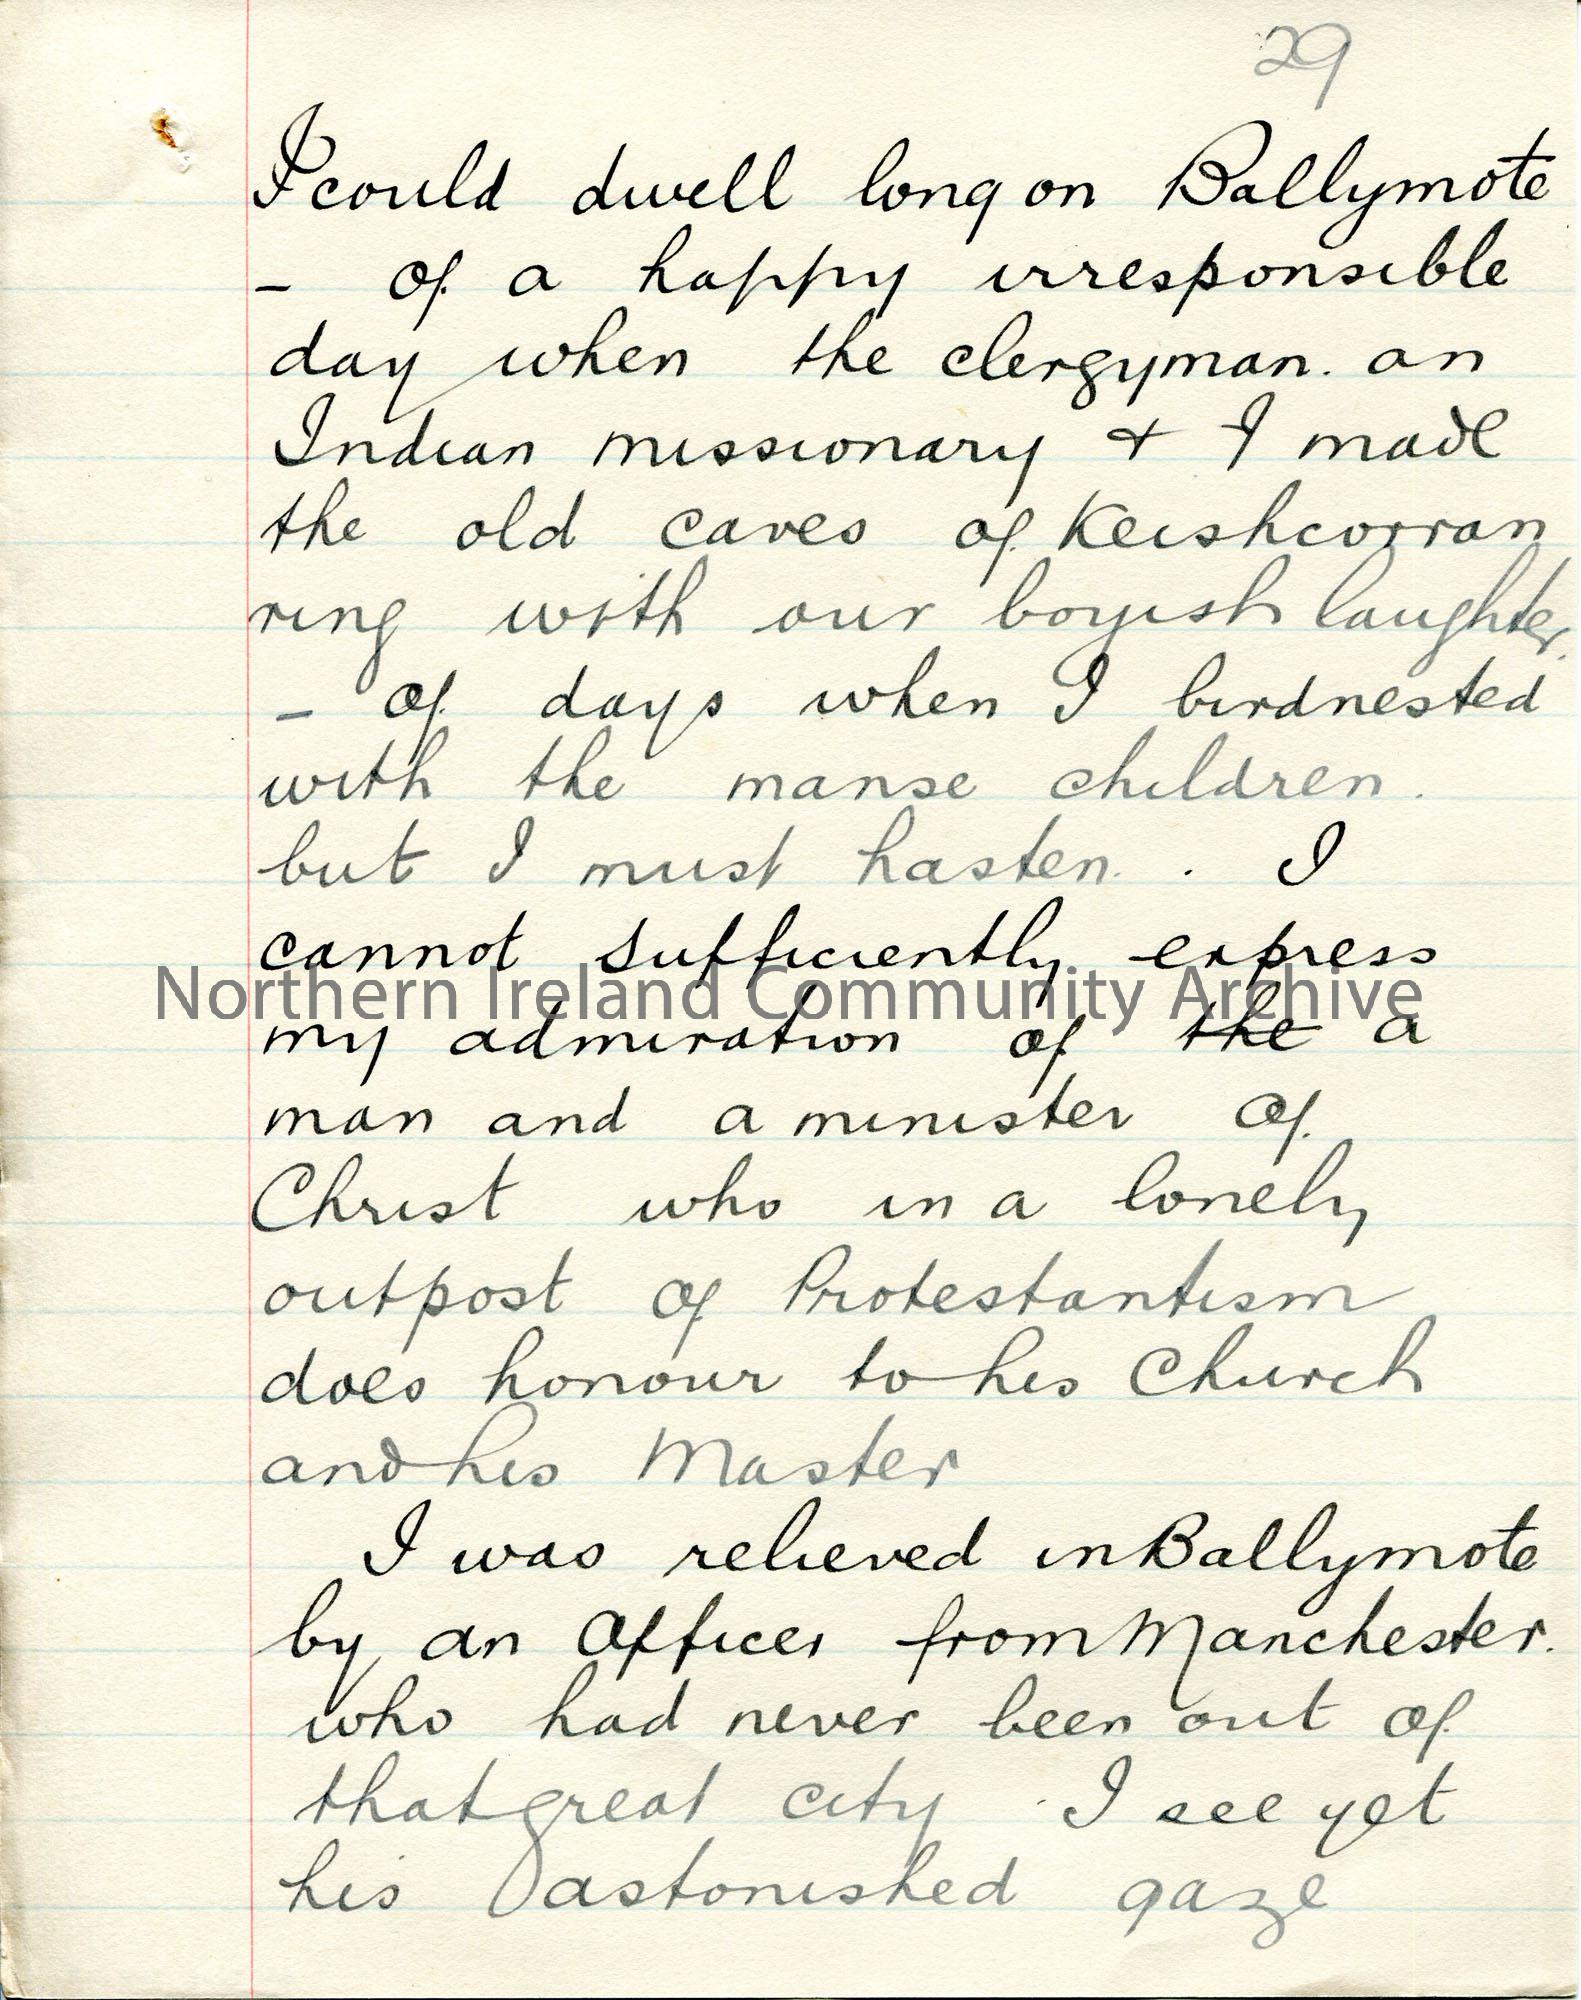 29
I could dwell long on Ballymote
– of a happy irresponsible
day when the clergyman. an
Indian missionary & I made
the old caves of Keishcorran
ring with our boyish laughter.
– of days when I birdnested
with the manse children.
but I must hasten. . I
cannot sufficiently express
Northern Ireland Community Archive
my admiration of the a
man and a minister of
Christ who in a lonely
outpost of Protestantism
does honour to his Church
and his Master
I was relieved in Ballymote
by an Officer from Manchester.
who had never been out of
that great city . I see yet
his astonished gaze